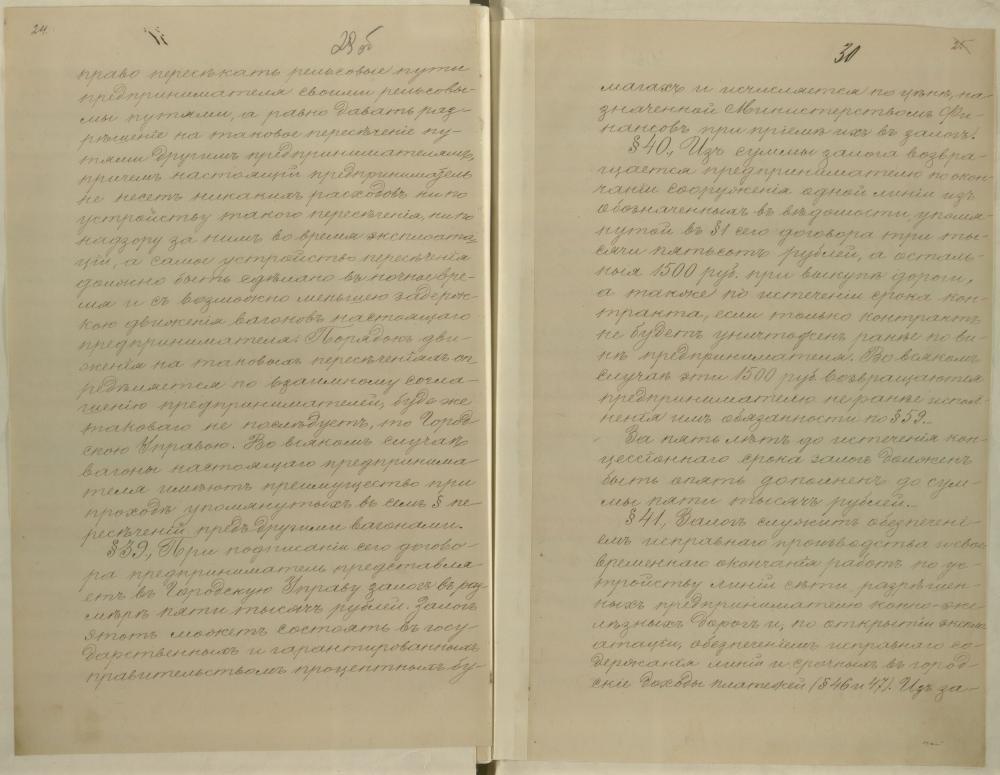 24
29 об
право пересѣкать рельсовые пути
предпринимателя своими рельсовы-
ми путями, а равно давать раз-
рѣшеніе на таковое пересѣченіе пу-
тями другимъ предпринимателямъ,
причемъ настоящій предприниматель
не несетъ никакихъ расходовъ ни по
устройству такого пересѣченія, ни по
надзору за нимъ во время эксплоата-
ціи, а самое устройство пересѣченія
должно быть сдѣлано въ ночное вре-
мя и съ возможно меньшею задерж-
кою движенія вагоновъ настоящаго
предпринимателя. Порядокъ дви-
женія на таковыхъ пересѣченіяхъ оп-
редѣляется по взаимному согла-
шенію предпринимателей, буде же
таковаго не послѣдуетъ, то Город-
скою Управою. Во всякомъ случаѣ
вагоны настоящаго предпринима-
теля имѣютъ преимущество при
проходѣ упомянутыхъ въ семъ § пе-
ресѣченій предъ другими вагонами.
§ 39, При подписаніи сего догово-
ра предприниматель представля-
етъ въ Городскую Управу залогъ въ раз-
мѣрѣ пяти тысячъ рублей. Залогъ
этотъ можетъ состоять въ госу-
дарственныхъ и гарантированныхъ
правительствомъ процентныхъ бу-
30
25
магахъ и исчисляется по цѣнѣ, на-
значенной Министерствомъ Фи-
нансовъ при пріемѣ ихъ въ залогъ.
§ 40, Изъ суммы залога возвра-
щается предпринимателю по окон-
чаніи сооруженія одной линіи изъ
обозначенныхъ въ вѣдомости, упомя-
нутой въ § 1 сего договора три ты-
сячи пятьсотъ рублей, а осталь-
ныя 1500 руб. при выкупѣ дороги,
а также по истеченіи срока кон-
тракта, если только контрактъ
не будетъ уничтоженъ ранѣе по ви-
нѣ предпринимателя. Во всякомъ
случаѣ эти 1500 руб возвращаются
предпринимателю не ранѣе испол-
ненія имъ обязанности по § 59.
За пять лѣтъ до истеченія кон-
цессіоннаго срока залогъ долженъ
быть опять дополненъ до сум-
мы пяти тысячъ рублей.
§ 41, Залогъ служитъ обезпечені-
емъ исправнаго производства и свое-
временнаго окончанія работъ по ус-
тройству линій сѣти разрѣшен-
ныхъ предпринимателю конно-же-
лѣзныхъ дорогъ и, по открытіи эксплу-
атаціи, обезпеченіемъ исправнаго со-
держанія линій и срочныхъ въ город-
скіе доходы платежей (§ 46 и 47). Изъ за-